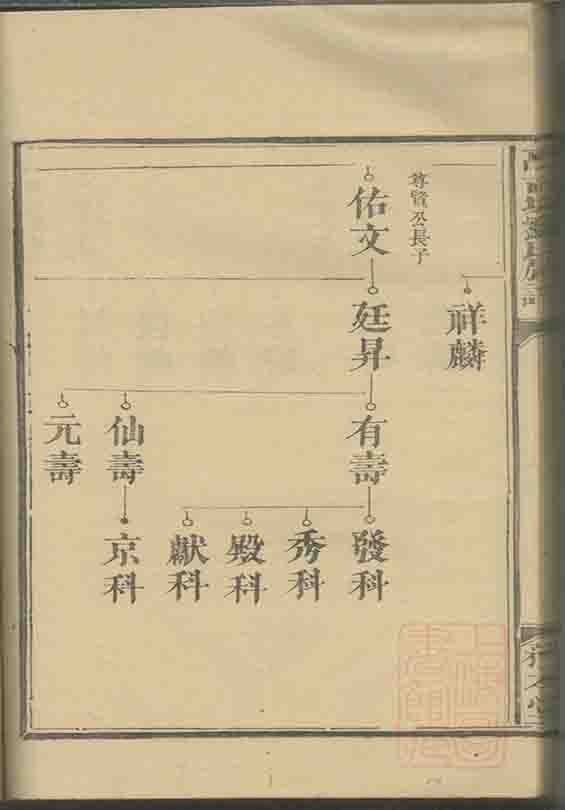 祥麟
尊賢公長子
佑文
廷昇
有壽
發科
秀科
殿科
獻科
仙壽
京科
元壽